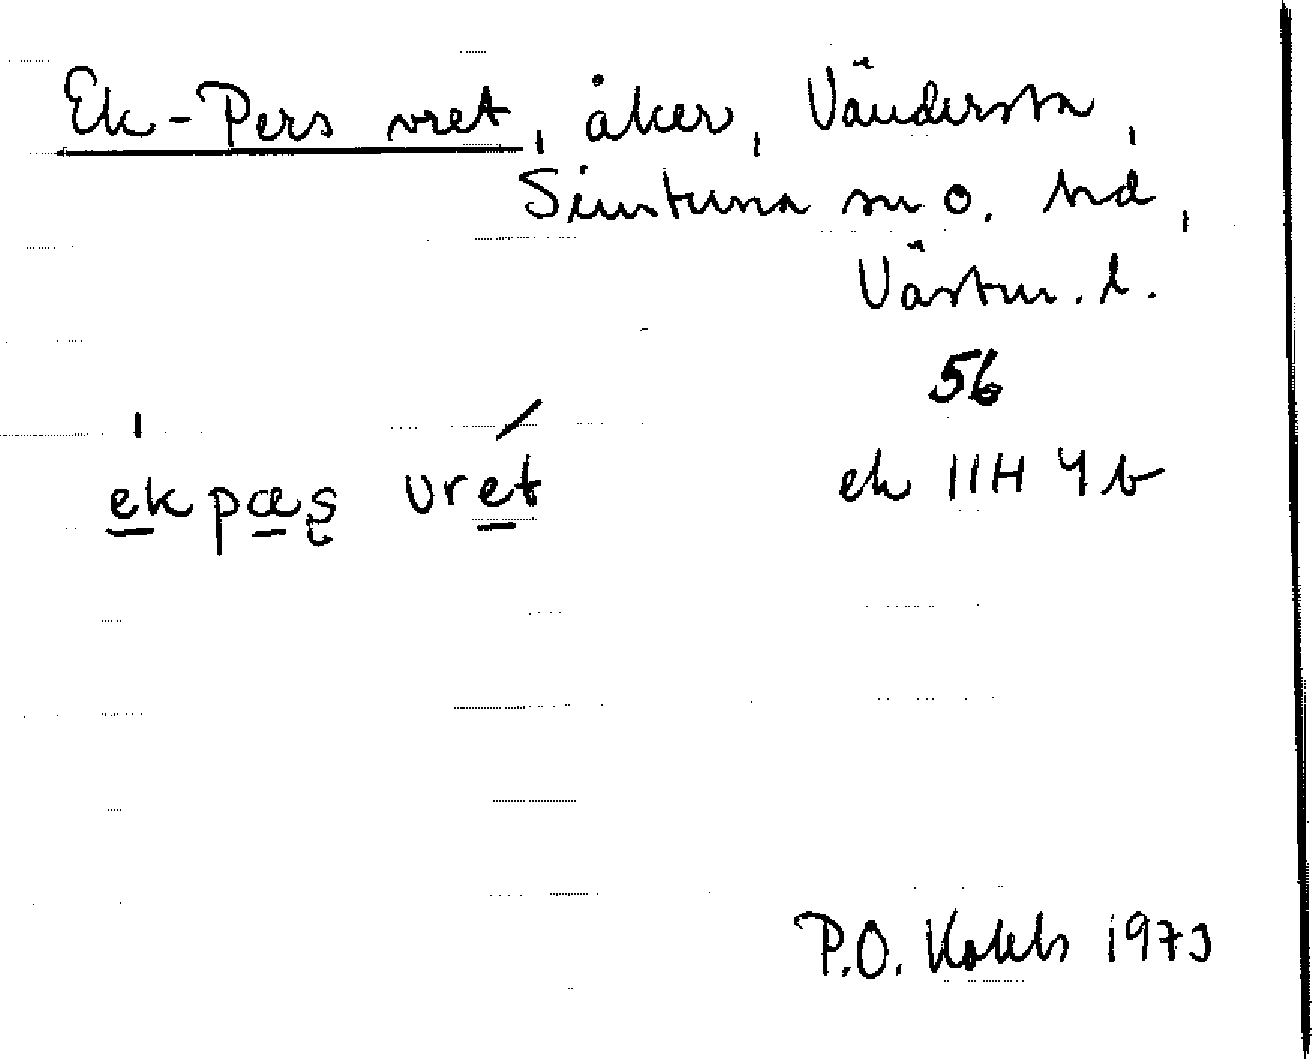 Ek-Pers vret, åker, Vändersta,
Simtuna sn o. hd,
Västm. l.
56
ekpæs vret
ek 11H 4b
P.O. 1973